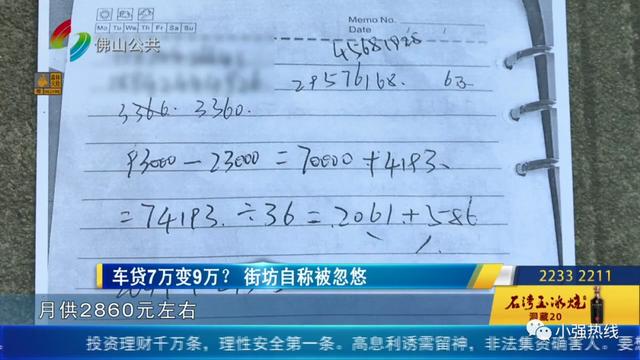 Memo No.
Mo Tu We Th Fr Sa Su
Date
佛山公共
45681928
29576168.
3366. 3360.
93000-23000=70000+4193.
=74193.÷36=2061+586
车贷7万变9万? 街坊自称被忽悠
2233 2211
月供2860元左右
石湾玉冰烧
洞藏20
小强热线
投资理财千万条，理性安全第一条。高息利诱需留神，非法集资确害人。要